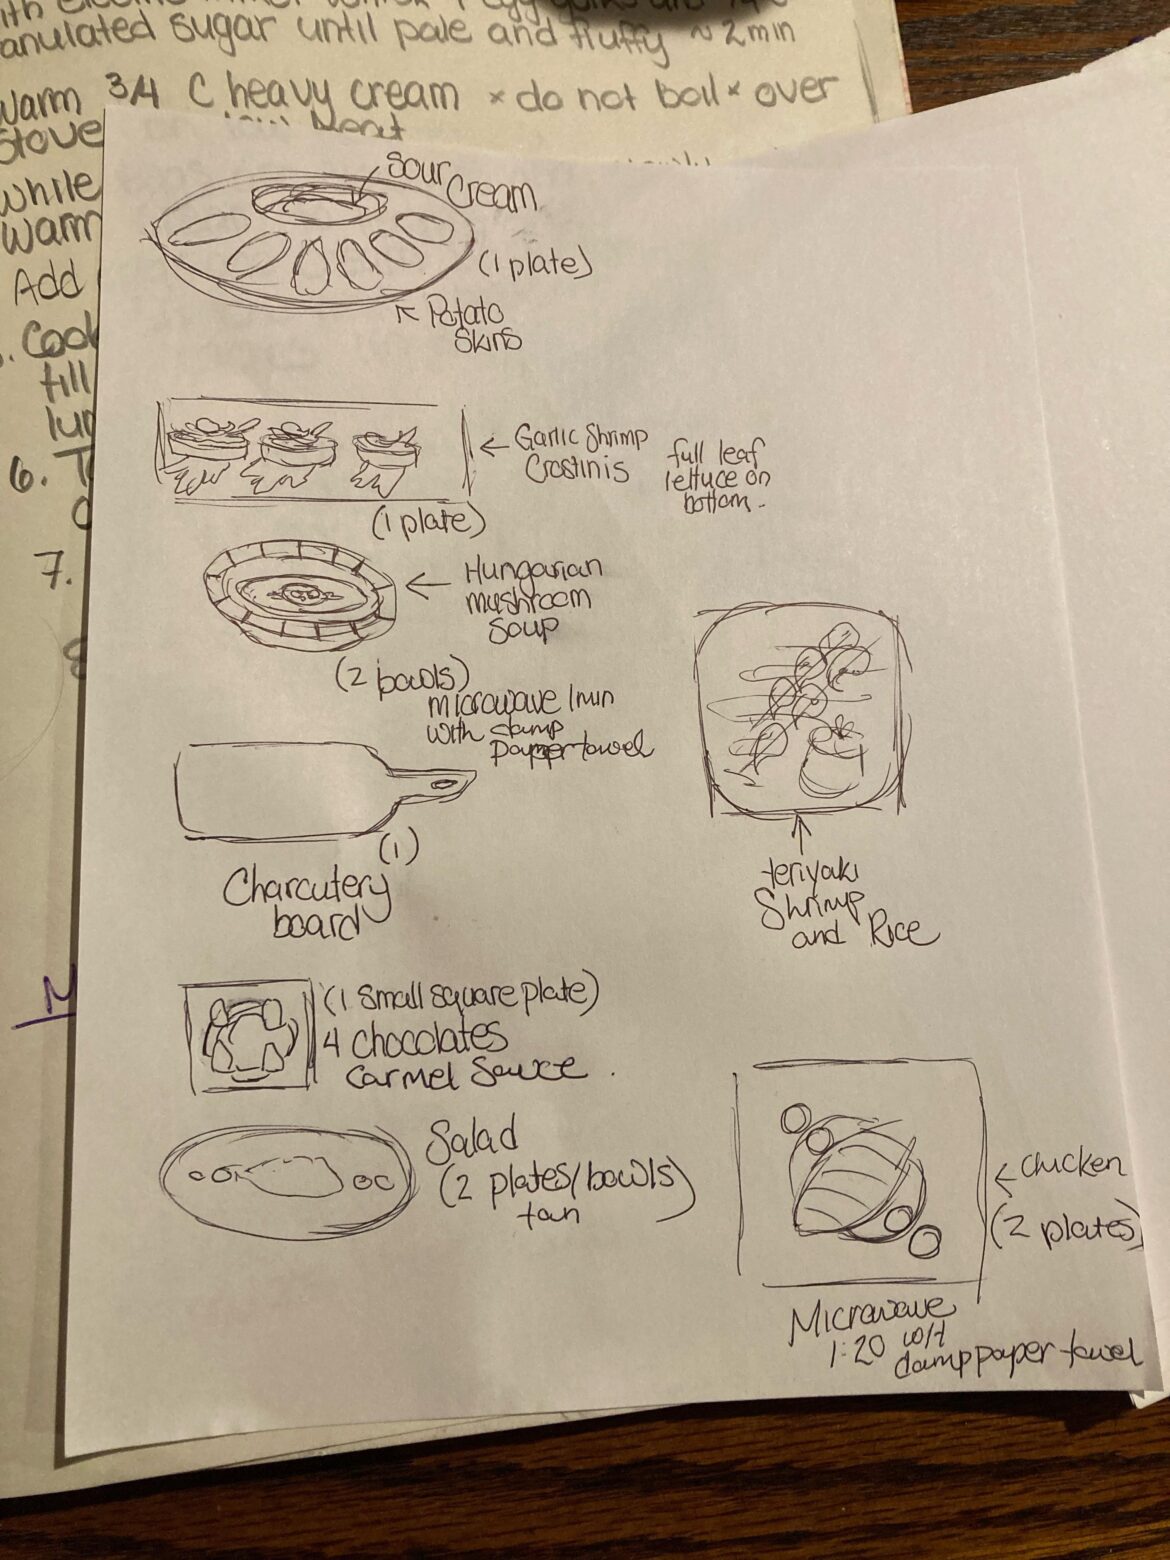 anulated sugar until pale and fluffy ~ 2 min
Warm 3/4 C heavy cream * do not boil * over
Stove
while
warm
Add
Cook
till
6.
7.
Sour
Cream
(1 plate)
Potato
Skins
Garlic Shrimp
Crostinis
full leaf
lettuce on
bottom.
(1 plate)
Hungarian
mushroom
Soup
(2 bowls)
microwave 1min
with damp
paper towel
(1)
Charcutery
board
teriyaki
Shrimp
and Rice
(1 Small square plate)
4 chocolates
Carmel Sauce.
Salad
(2 plates/bowls)
tan
Chicken
(2 plates)
Microwave
1:20 w/t
damp paper towel